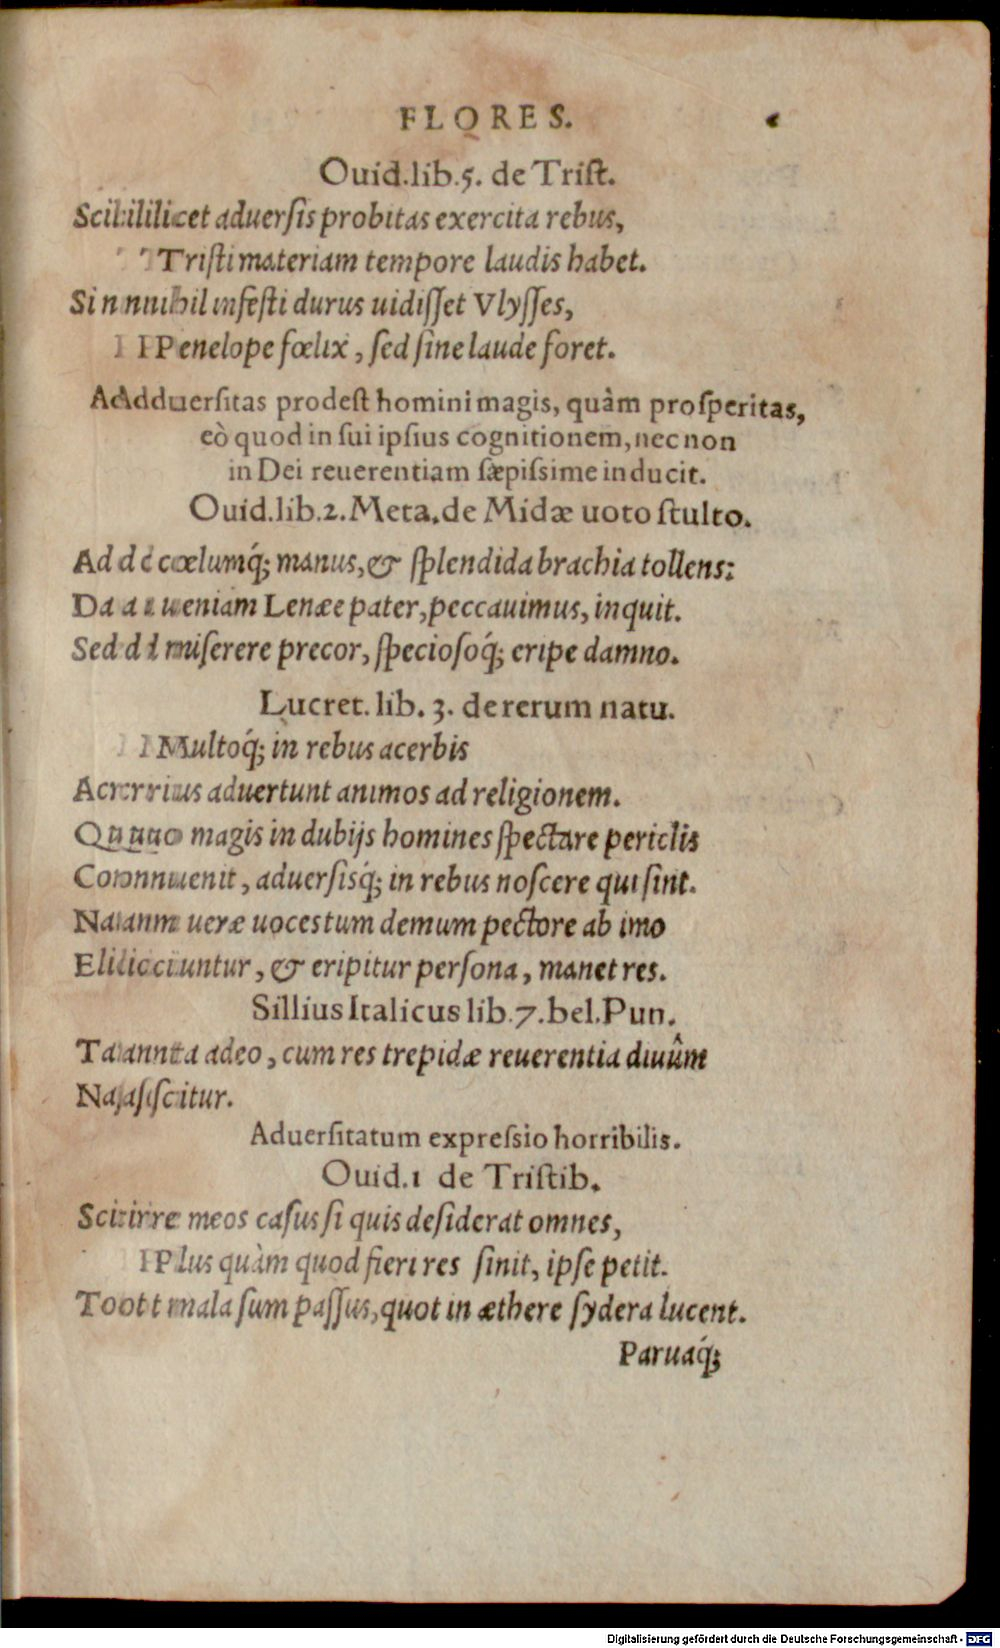 FLORES.
Ouid.lib.5. de Trist.
Scilicet aduersis probitas exercita rebus,
Tristi materiam tempore laudis habet.
Si nihil infesti durus uidisset Vlysses,
Penelope fœlix, sed sine laude foret.
Aduersitas prodest homini magis, quàm prosperitas,
eò quod in sui ipsius cognitionem, nec non
in Dei reuerentiam sæpissime inducit.
Ouid.lib.2.Meta.de Midæ uoto stulto.
Ad cœlumq́; manus, & splendida brachia tollens:
Da ueniam Lenæe pater, peccauimus, inquit.
Sed miserere precor, speciosoq́; eripe damno.
Lucret. lib. 3. de rerum natu.
Multoq́; in rebus acerbis
Acrius aduertunt animos ad religionem.
Quo magis in dubijs homines spectare periclis
Conuenit, aduersisq́; in rebus noscere qui sint.
Nam ueræ uoces tum demum pectore ab imo
Eliciuntur, & eripitur persona, manet res.
Sillius Italicus lib.7.bel.Pun.
Tanta adeo, cum res trepidæ reuerentia diuûm
Nascitur.
Aduersitatum expressio horribilis.
Ouid.1 de Tristib.
Scire meos casus si quis desiderat omnes,
Plus quàm quod fieri res sinit, ipse petit.
Tot mala sum passus, quot in æthere sydera lucent.
Paruaq́;
Digitalisierung gefördert durch die Deutsche Forschungsgemeinschaft - DFG